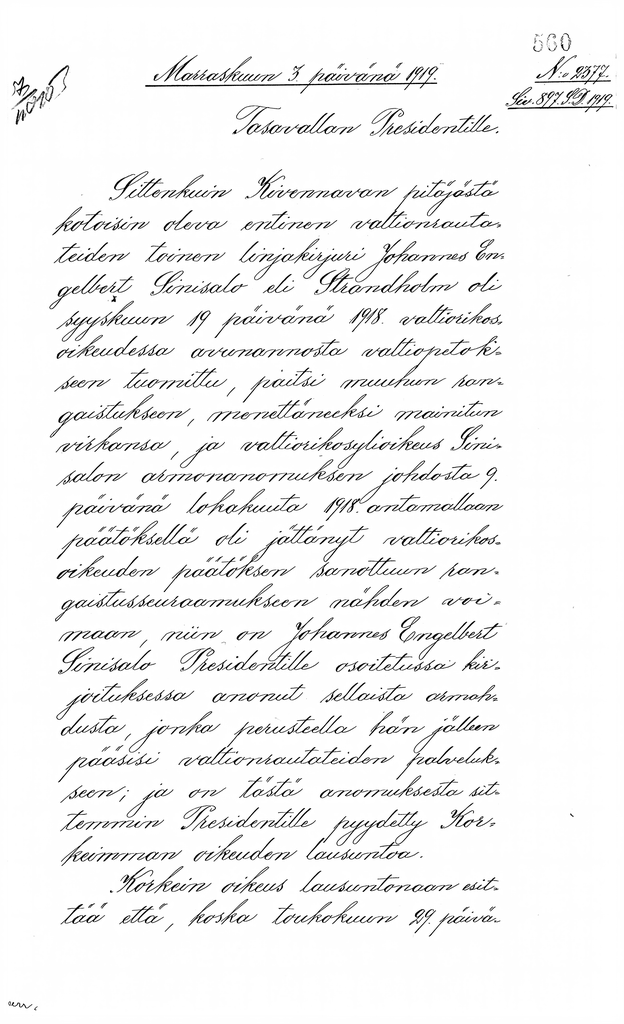 560
Marraskuun 3. päivänä 1919.
N:o 2377.
Siv. 897. S.D. 1919.
Tasavallan Presidentille.
Sittenkuin Kivennavan pitäjästä
kotoisin oleva entinen valtionrauta-
teiden toinen linjakirjuri Johannes En-
gelbert Sinisalo eli Strandholm oli
syyskuun 19 päivänä 1918. valtiorikos-
oikeudessa avunannosta valtiopetok-
seen tuomittu, paitsi muuhun ran-
gaistukseen, menettäneeksi mainitun
virkansa, ja valtiorikosylioikeus Sini-
salon armonanomuksen johdosta 9.
päivänä lokakuuta 1918. antamallaan
päätöksellä oli jättänyt valtiorikos-
oikeuden päätöksen sanottuun ran-
gaistusseuraamukseen nähden voi-
maan, niin on Johannes Engelbert
Sinisalo Presidentille osoitetussa kir-
joituksessa anonut sellaista armah-
dusta, jonka perusteella hän jälleen
pääsisi valtionrautateiden palveluk-
seen; ja on tästä anomuksesta sit-
temmin Presidentille pyydetty Kor-
keimman oikeuden lausuntoa.
Korkein oikeus lausuntonaan esit-
tää että, koska toukokuun 29. päivä-